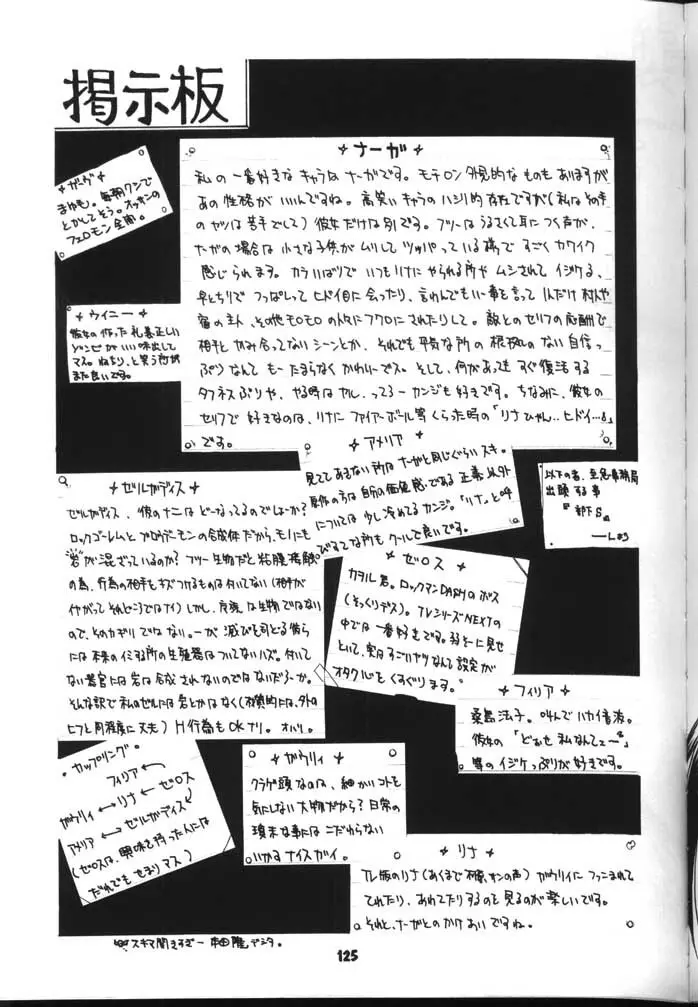 掲示板
ナーガ
私の一番好きなキャラはナーガです。モチロン外見的なものもありますが
あの性格がいいんですね。高笑いキャラのハシリ的存在ですが(私はこの手
のヤツは苦手でして)彼女だけは別です。フツーはうるさくて耳につく声が、
ナーガの場合は小さな子供がムリしてツッパっている様ですごくカワイク
感じられます。カラいばりでいつもリナにやられる所やムシされてイジケる、
早とちりでつっぱしってヒドイ目に会ったり、言わんでもいー事を言って
宿の主人、その他モロモロの人々にフクロにされたりして。敵とのセリフの応酬で
相手とかみ合ってないシーンとか、それでも平気な所の根拠のない自信っ
ぷりなんてもーたまらなくかわいーでス。そして、何があってもすぐ復活する
タフネスぶりや、やる時はヤル、ってろーカンジも好きです。ちなみに、彼女の
セリフで好きなのは、リナにファイアーボール等くらった時の「リナひゃん‥ヒドイ…」
です。
ガーヴ
まゆ毛。毎朝クシで
とかしてそう。オッサンの
フェロモン全開。
ウイニー
彼女の作った礼儀正しい
ゾンビがいい味出して
マス。ねちり、と笑う所が
また良いです。
アメリア
見ててあきない所はナーガと同じぐらいスキ。
原作の方は自分の価値感である正義以外
については少し冷めてるカンジ。「リナ」と呼
びすてな所もクールで良いです。
以下の者、至急事務局
出頭する事
『部下S』
ゼルガディス
ゼルガディス、彼のナニはどーなってるのでしょーか?
ロックゴーレムとブロウデーモンの合成体だから、モノにも
"岩"が混ざっているのか?フツー生物だと粘膜接触
の為、行為の相手をキズつけるものは付いてない(相手が
イヤがってそれどころではナイ)しかし、魔族は生物ではない
ので、そのカギリではない。ーが滅びを司どる彼ら
には本来のイミする所の生殖器はついてないハズ。付いて
ない器官には岩は合成されないのではないだろーか。
そんな訳で私のゼルには岩とかはなく(材質的には、外の
ヒフと同程度に丈夫)H行為もOKナリ。オハリ。
ゼロス
カヲル君。ロックマンDASHのボス
(そっくりデス)。TVシリーズNEXTの
中では一番好きです。弱そーに見せ
といて、実はすごいヤツなんて設定が
オタク心をくすぐります。
フィリア
桑島法子。叫んでハカイ音波。
彼女の「どぉせ私なんてェ〜」
等のイジケっぷりが好きです。
カップリング
フィリア
ガウリィ ←→ リナ ← ゼロス
アメリア ←→ ゼルガディス
(ゼロスは、興味を持った人には
だれでもせまりマス)
ガウリィ
クラゲ頭なのは、細かいコトを
気にしない大物だから?日常の
瑣末な事にはこだわらない
いかすナイスガイ。
リナ
TV版のリナ(あくまで林原サンの声)ガウリイにファニまれて
てれたり、あわてたりするのを見るのが楽しいです。
それと、ナーガとのかけあいですね。
スキマ開きすぎー
125